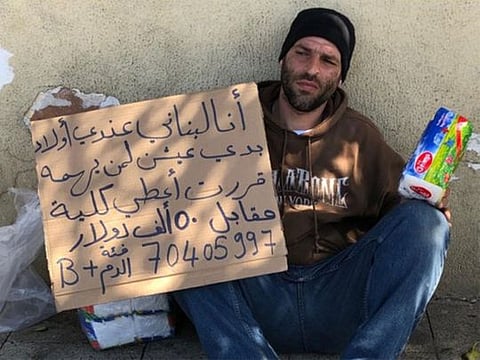 أنا لبناني عندي أولاد
بدي عيش لمن يهمه
قررت أعطي كلية
مقابل ٥٠ ألف دولار
70405997 فئة
الدم B+